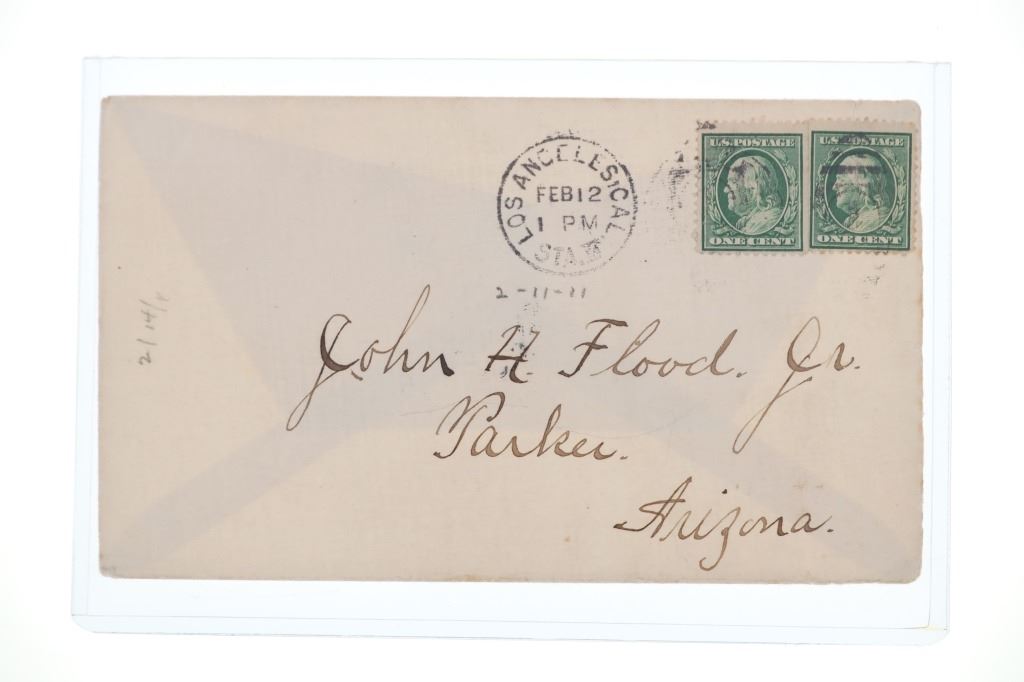 U.S. POSTAGE
ONE CENT
U.S. POSTAGE
ONE CENT
LOS ANGELES, CAL
FEB 12
1 PM
STA.
2-11-11
2/14/
John H. Flood. Jr.
Parker.
Arizona.